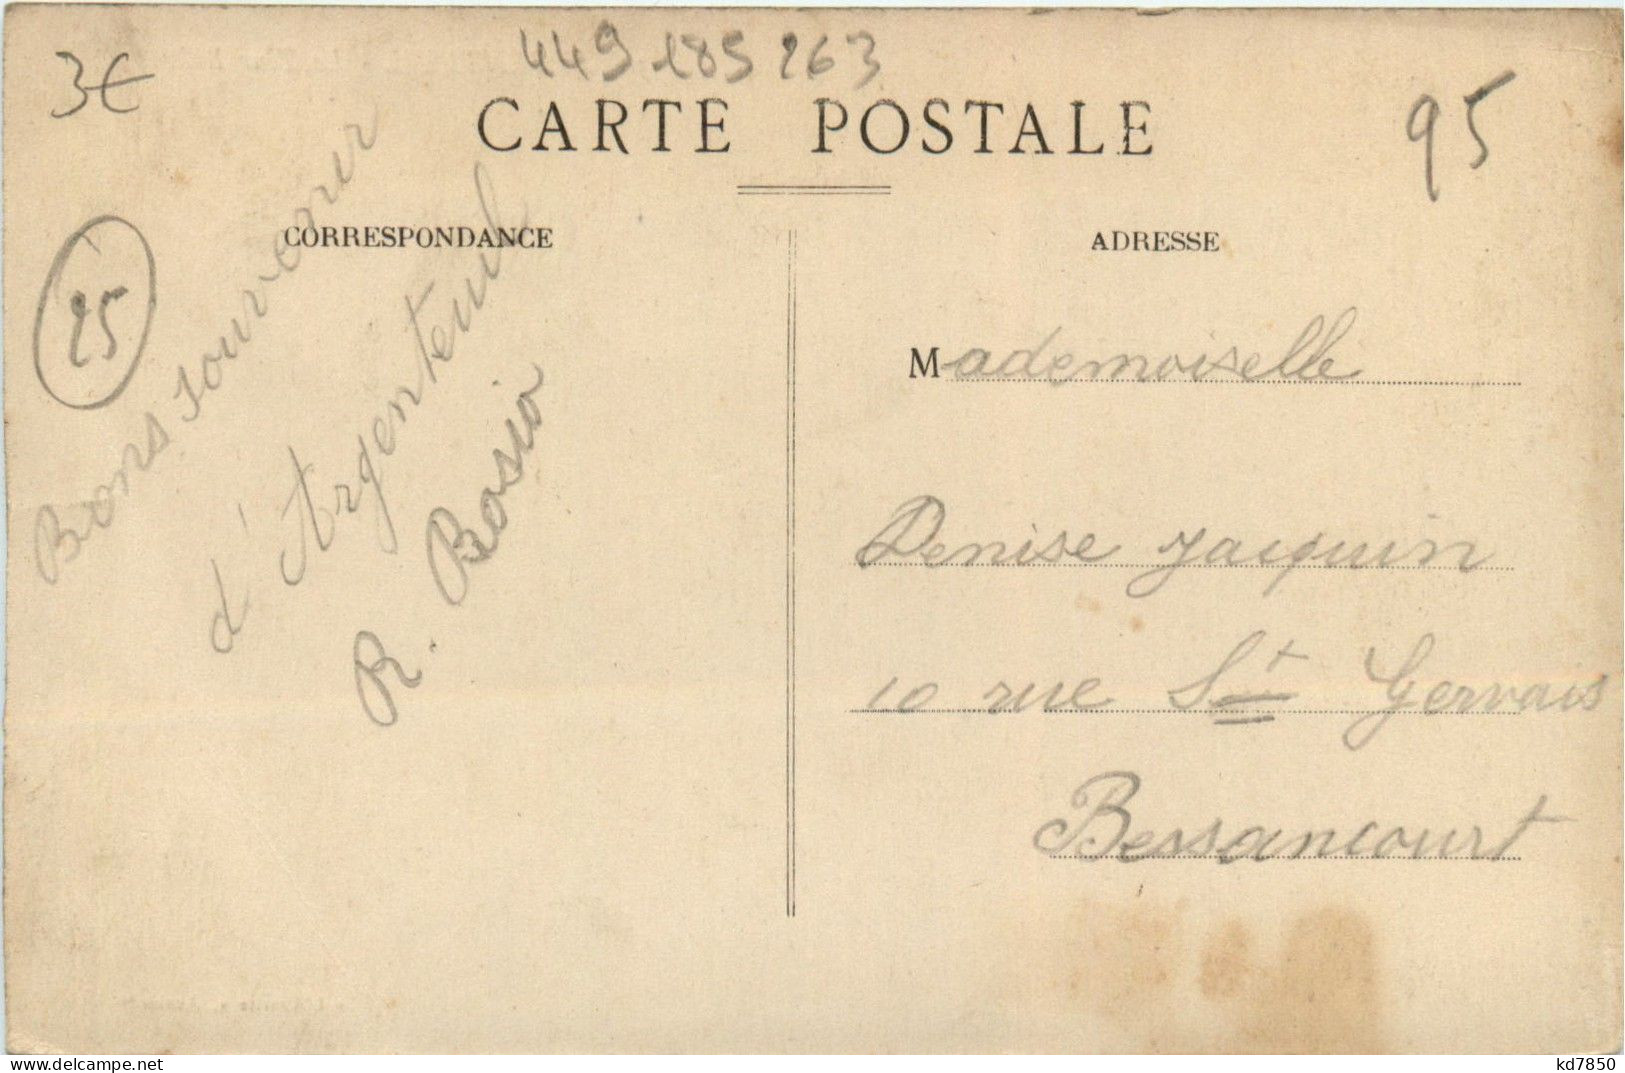 449 185 263
3€
CARTE POSTALE
95
CORRESPONDANCE
ADRESSE
Bons souvenir
d'Argenteuil
R. Bosio
Mademoiselle
Denise Jacquin
10 rue St Gervais
Bessancourt
kd7850